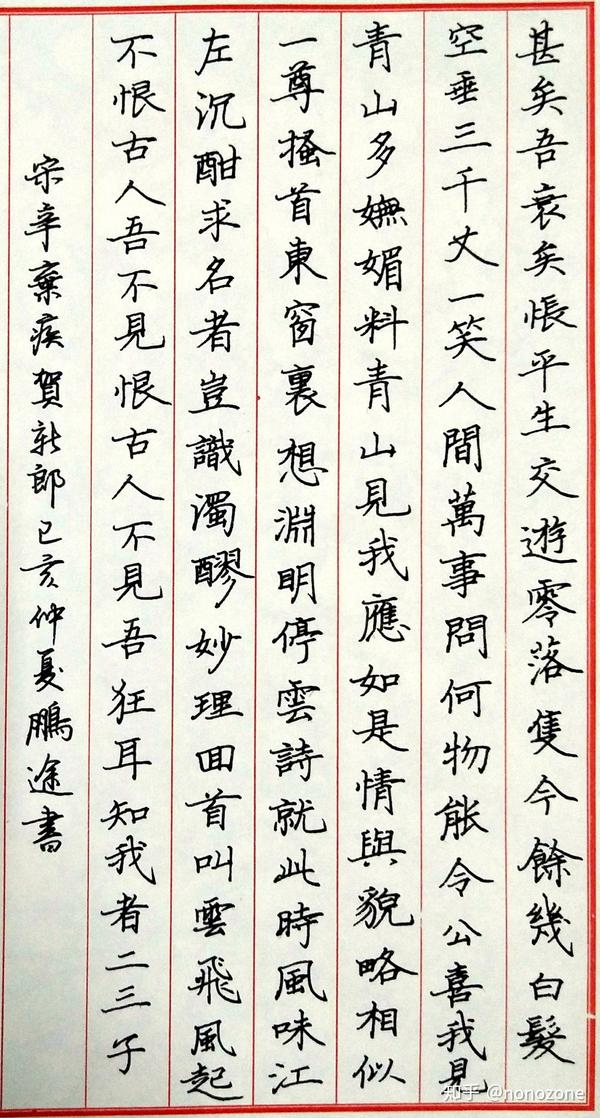 甚矣吾衰矣悵平生交遊零落隻今餘幾白髮
空垂三千丈一笑人間萬事問何物能令公喜我見
青山多嫵媚料青山見我應如是情與貌略相似
一尊搔首東窗裏想淵明停雲詩就此時風味江
左沉酣求名者豈識濁醪妙理回首叫雲飛風起
不恨古人吾不見恨古人不見吾狂耳知我者二三子
宋辛棄疾賀新郎己亥仲夏鵬途書
知乎 @nonozone